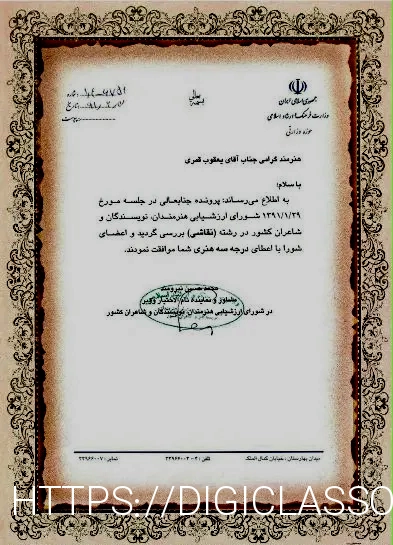 جمهوری اسلامی ایران
وزارت فرهنگ و ارشاد اسلامی
حوزه وزارتی
بسمه تعالی
شماره:
تاریخ:
پیوست
هنرمند گرامی جناب آقای یعقوب قمری
با سلام؛
به اطلاع می‌رساند: پرونده جنابعالی در جلسه مورخ
۱۳۹۱/۱/۲۹ شورای ارزشیابی هنرمندان، نویسندگان و
شاعران کشور در رشته (نقاشی) بررسی گردید و اعضای
شورا با اعطای درجه سه هنری شما موافقت نمودند.
محمدحسین نیرومند
مشاور و نماینده تام الاختیار وزیر
در شورای ارزشیابی هنرمندان، نویسندگان و شاعران کشور
میدان بهارستان، خیابان کمال الملک تلفن: ۳-۳۳۹۶۶۰۰۲ نمابر: ۳۳۹۶۶۰۰۷
HTTPS://DIGICLASSO